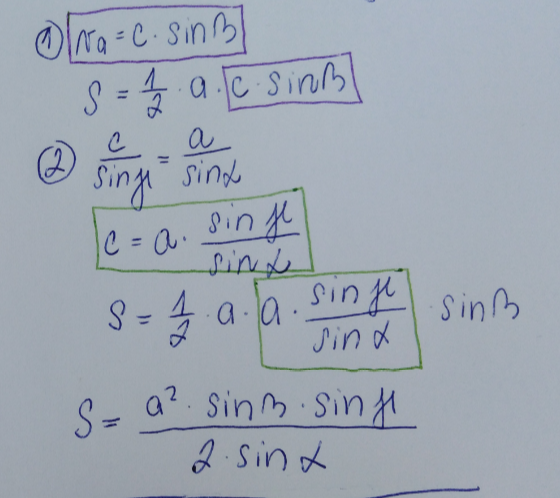 ① va = c · sin β
S = 1/2 · a · c · sin β
② c/sin γ = a/sin α
c = a · sin γ/sin α
S = 1/2 · a · a · sin γ/sin α · sin β
S = a² · sin β · sin γ/2 · sin α